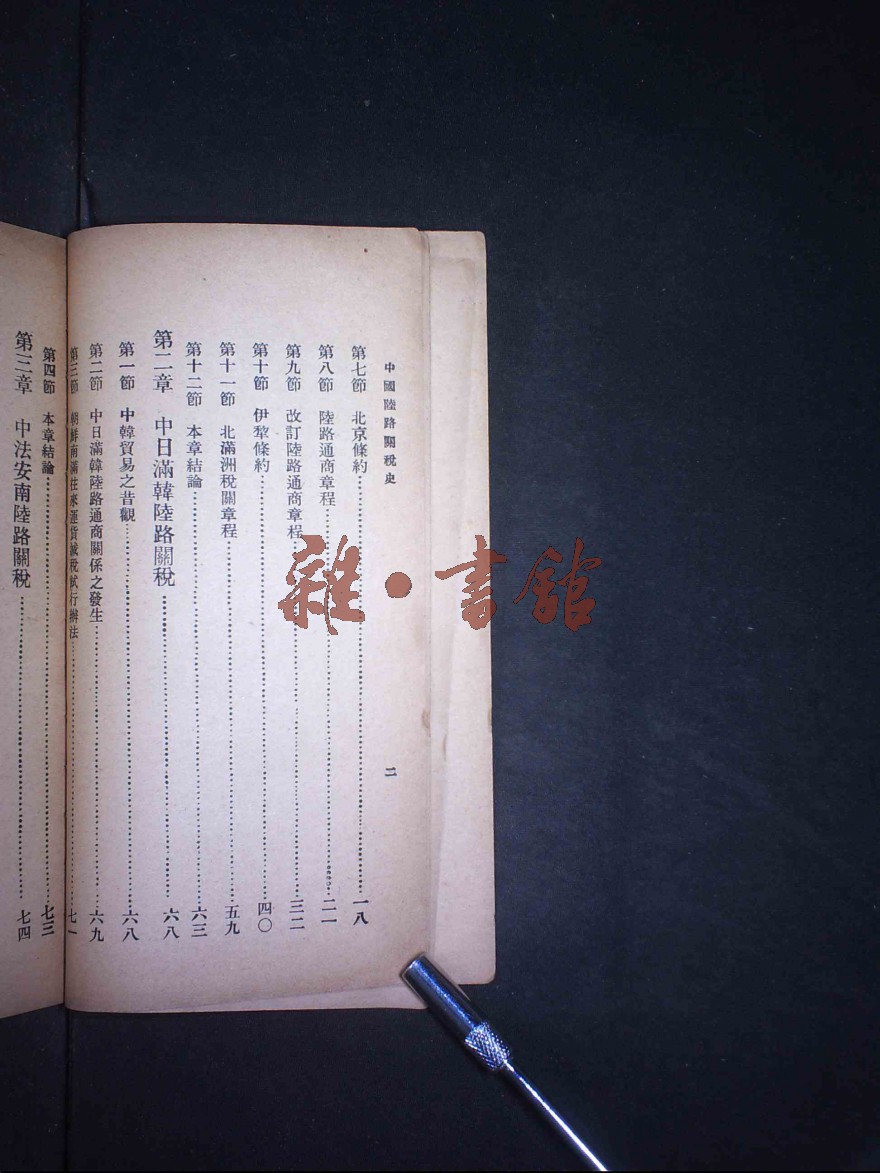 中國陸路關稅史
二
第七節 北京條約……一八
第八節 陸路通商章程……二一
第九節 改訂陸路通商章程……三二
第十節 伊犂條約……四〇
第十一節 北滿洲稅關章程……五九
第十二節 本章結論……六三
第二章 中日滿韓陸路關稅……六八
第一節 中韓貿易之昔觀……六八
第二節 中日滿韓陸路通商關係之發生……六九
第三節 朝鮮南滿往來運貨減稅試行辦法……七一
第四節 本章結論……七三
第三章 中法安南陸路關稅……七四
雜·書館